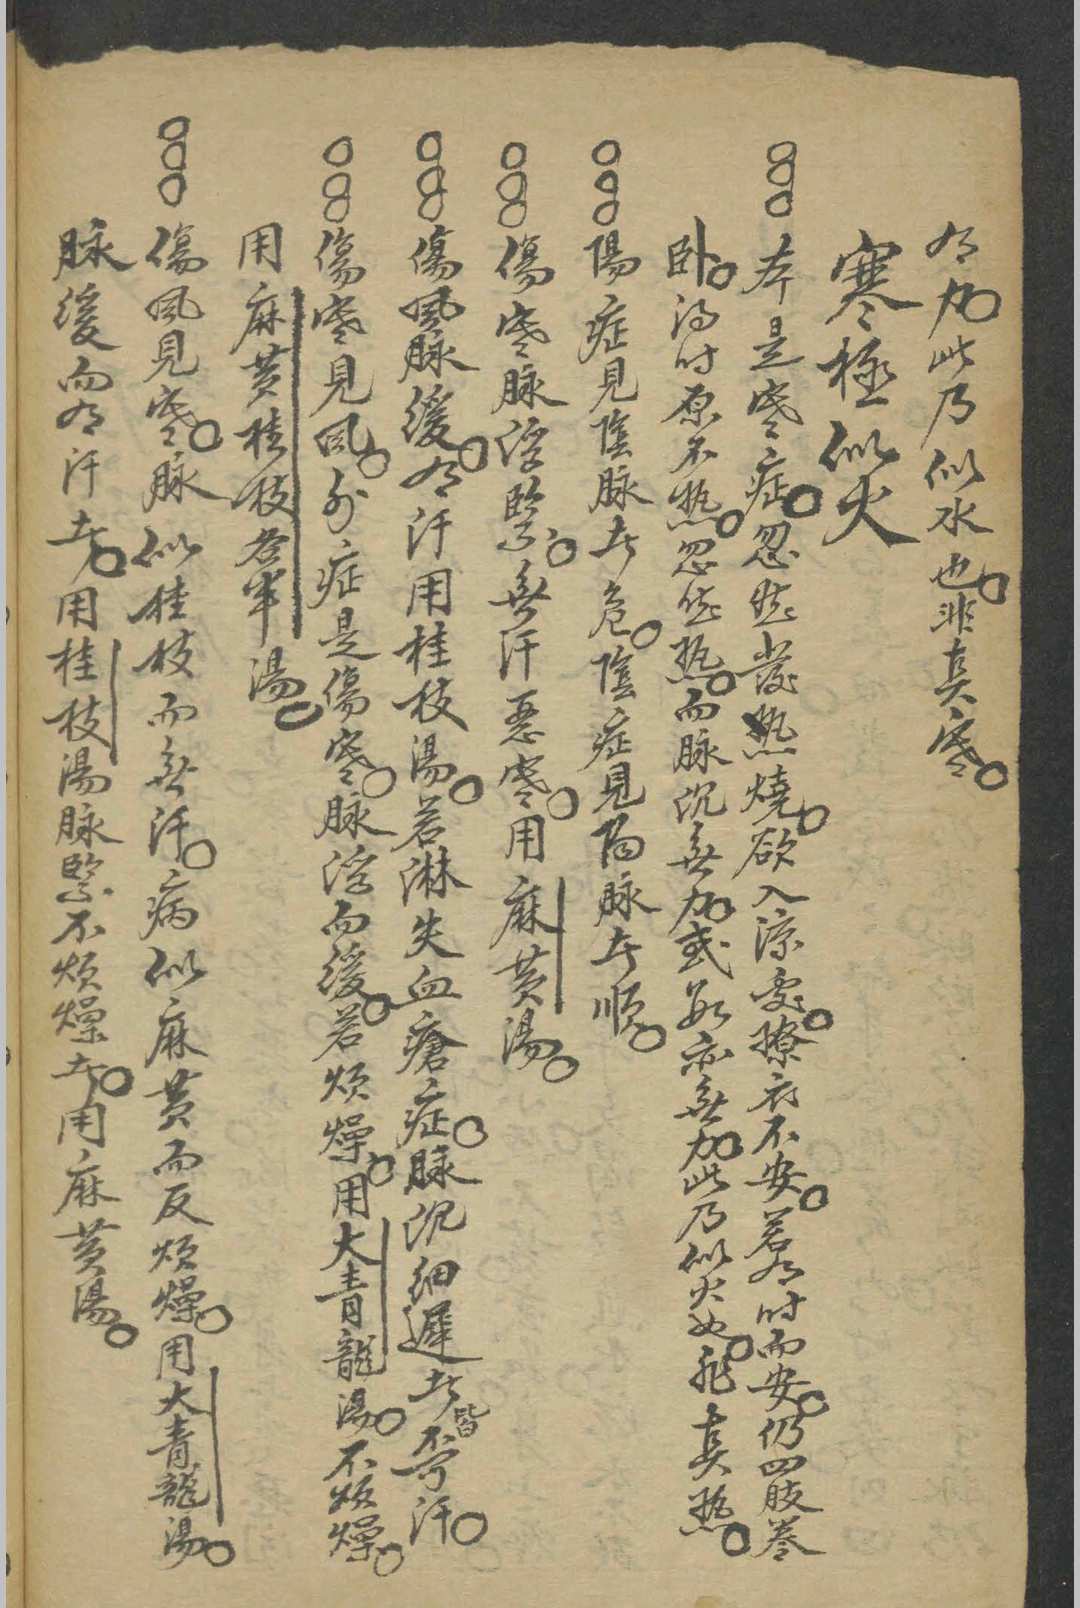 有力。此乃似水也。非真寒。
寒極似火
○○○本是寒症。忽然發熱燒。欲入涼處。撩衣不安。若有時而安。仍四肢卷
卧。得时原不熱。忽然热。而脉沉無力。或數亦無力。此乃似火也。非真熱。
○○○陽症見陰脉者危。陰症見陽脉者順。
○○○傷寒脉浮緊。無汗惡寒。用麻黄湯。
○○○傷風脉緩。有汗用桂枝湯。若淋失血瘡症。脉沉細遲者皆不可汗。
○○○傷寒見風。外症是傷寒。脉浮而緩。若煩燥。用大青龍湯。不煩燥。
用麻黄桂枝各半湯。
○○○傷風見寒。脉似桂枝而無汗。病似麻黄而反煩燥。用大青龍湯。
脉緩而有汗者。用桂枝湯脉緊不煩燥者。用麻黄湯。